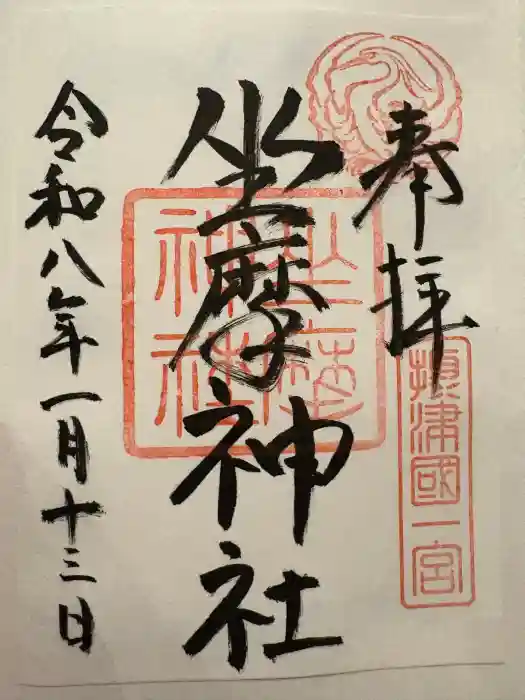 奉拝
摂津國一宮
坐摩神社
坐摩神社
令和八年一月十三日